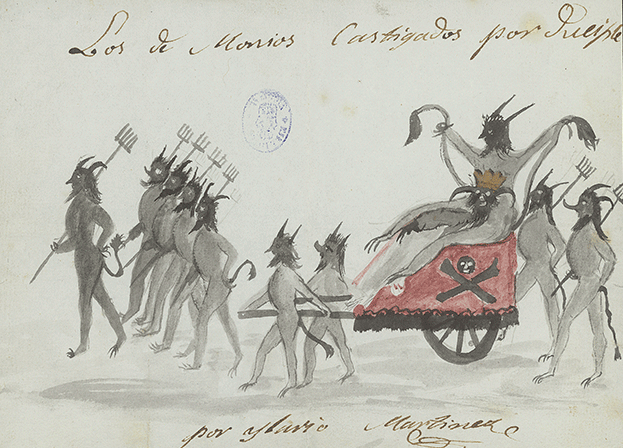 Los de Monios Castigados por
por ylario Martinez